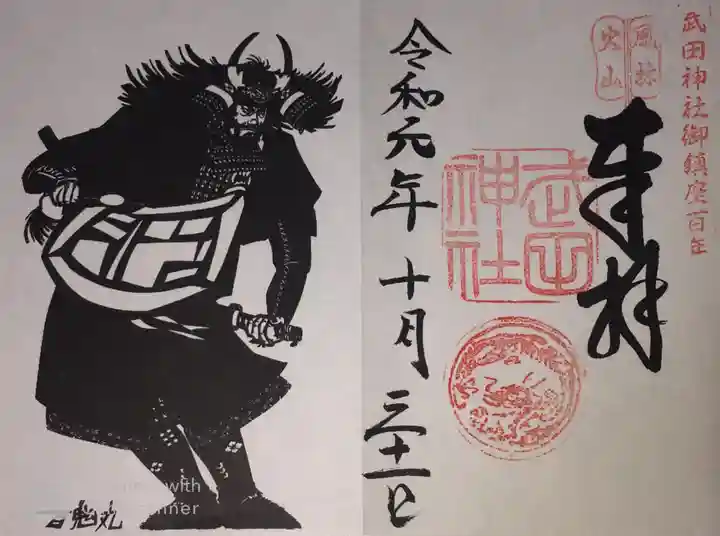 武田神社御鎮座百年
風林
火山
奉拝
武田
神社
令和元年十月三十一日
with
nner